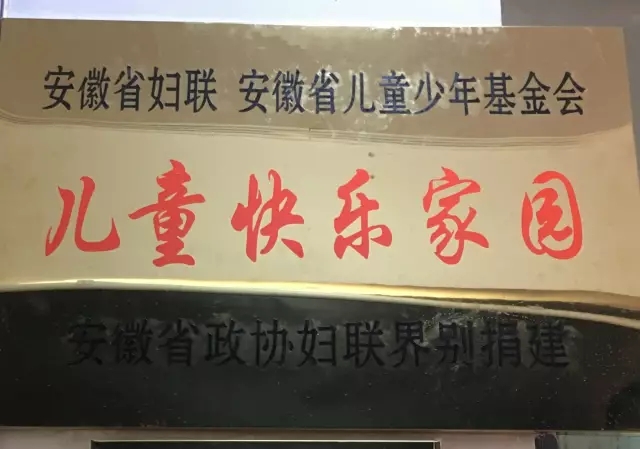 安徽省妇联 安徽省儿童少年基金会
儿童快乐家园
安徽省政协妇联界别捐建